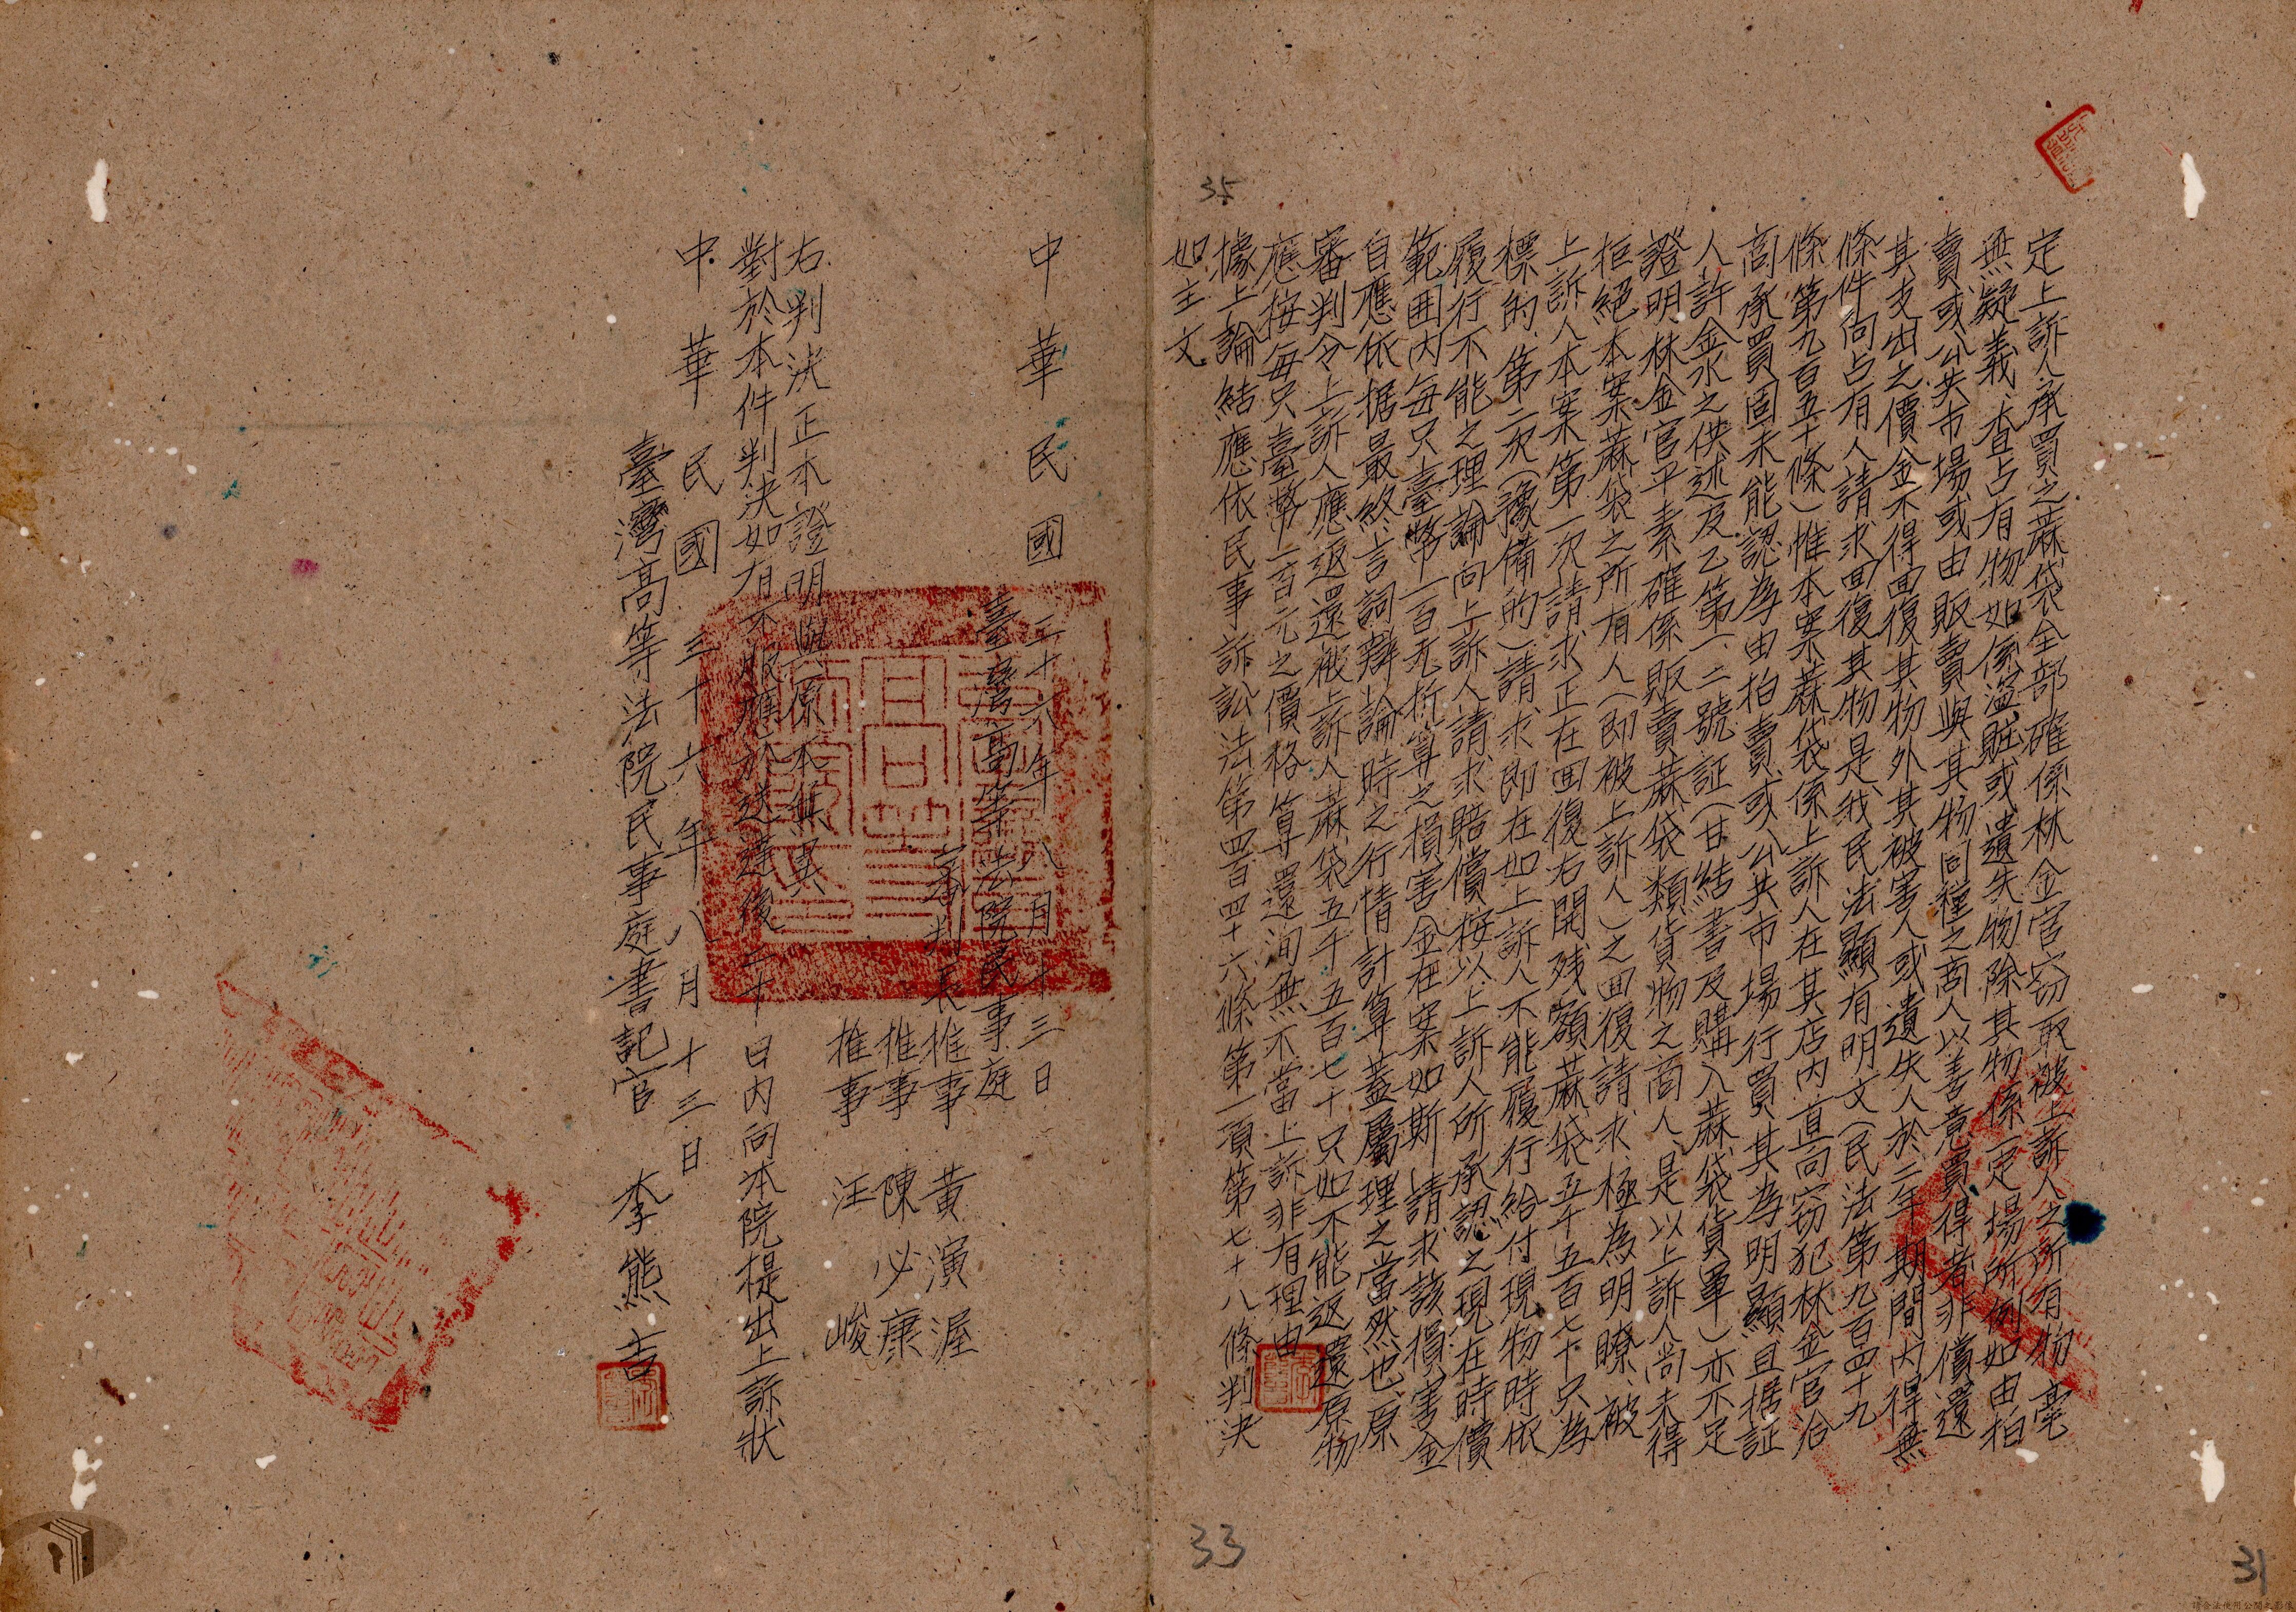 定上訴人承買之蔴袋全部確係林金官窃取被上訴人之所有物毫
無疑義、查占有物如係盜賍或遺失物除其物係一定場所例如由拍
賣或公共市場或由販賣與其物同種之商人以善意買得者非償還
其支出之價金不得回復其物外其被害人或遺失人於二年期間內得無
條件向占有人請求回復其物是我民法顯有明文(民法第九百四十九
條第九百五十條)惟本案蔴袋係上訴人在其店內、直向窃犯林金官洽
商承買固未能認為由拍賣或公共市場行買其為明顯且据証
人許金水之供述及乙第一、二號証(甘結書及購入蔴袋貨單)亦不足
證明林金官平素確係販賣蔴袋類貨物之商人、是以上訴人尚未得
拒絕本案蔴袋之所有人(即被上訴人)之回復請求、極為明瞭、被
上訴人本案第一次請求正在回復右開残額蔴袋五千五百七十只為
標的、第二次(豫備的)請求即在如上訴人不能履行給付現物時依
履行不能之理論向上訴人請求賠償按以上訴人所承認之現在時價
範囲內每只臺幣一百元折算之損害金在案如斯請求該損害金
自應依据最終言詞辯論時之行情計算蓋屬理之當然也、原
審判令上訴人應返還被上訴人蔴袋五千五百七十只如不能返還原物
應按每只臺幣一百元之價格算還洵無不當上訴非有理由
據上論結應依民事訴訟法第四百四十六條第一項第七十八條判決
如主文
中華民國三十六年八月十三日
臺灣高等法院民事庭
審判長推事 黃演渥
推事 陳必康
推事 汪峻
右判決正本證明與原本無異
對於本件判決如有不服應於送達後二十日內向本院提出上訴狀
中華民國三十六年八月十三日
臺灣高等法院民事庭書記官 李熊吉
35
33
31